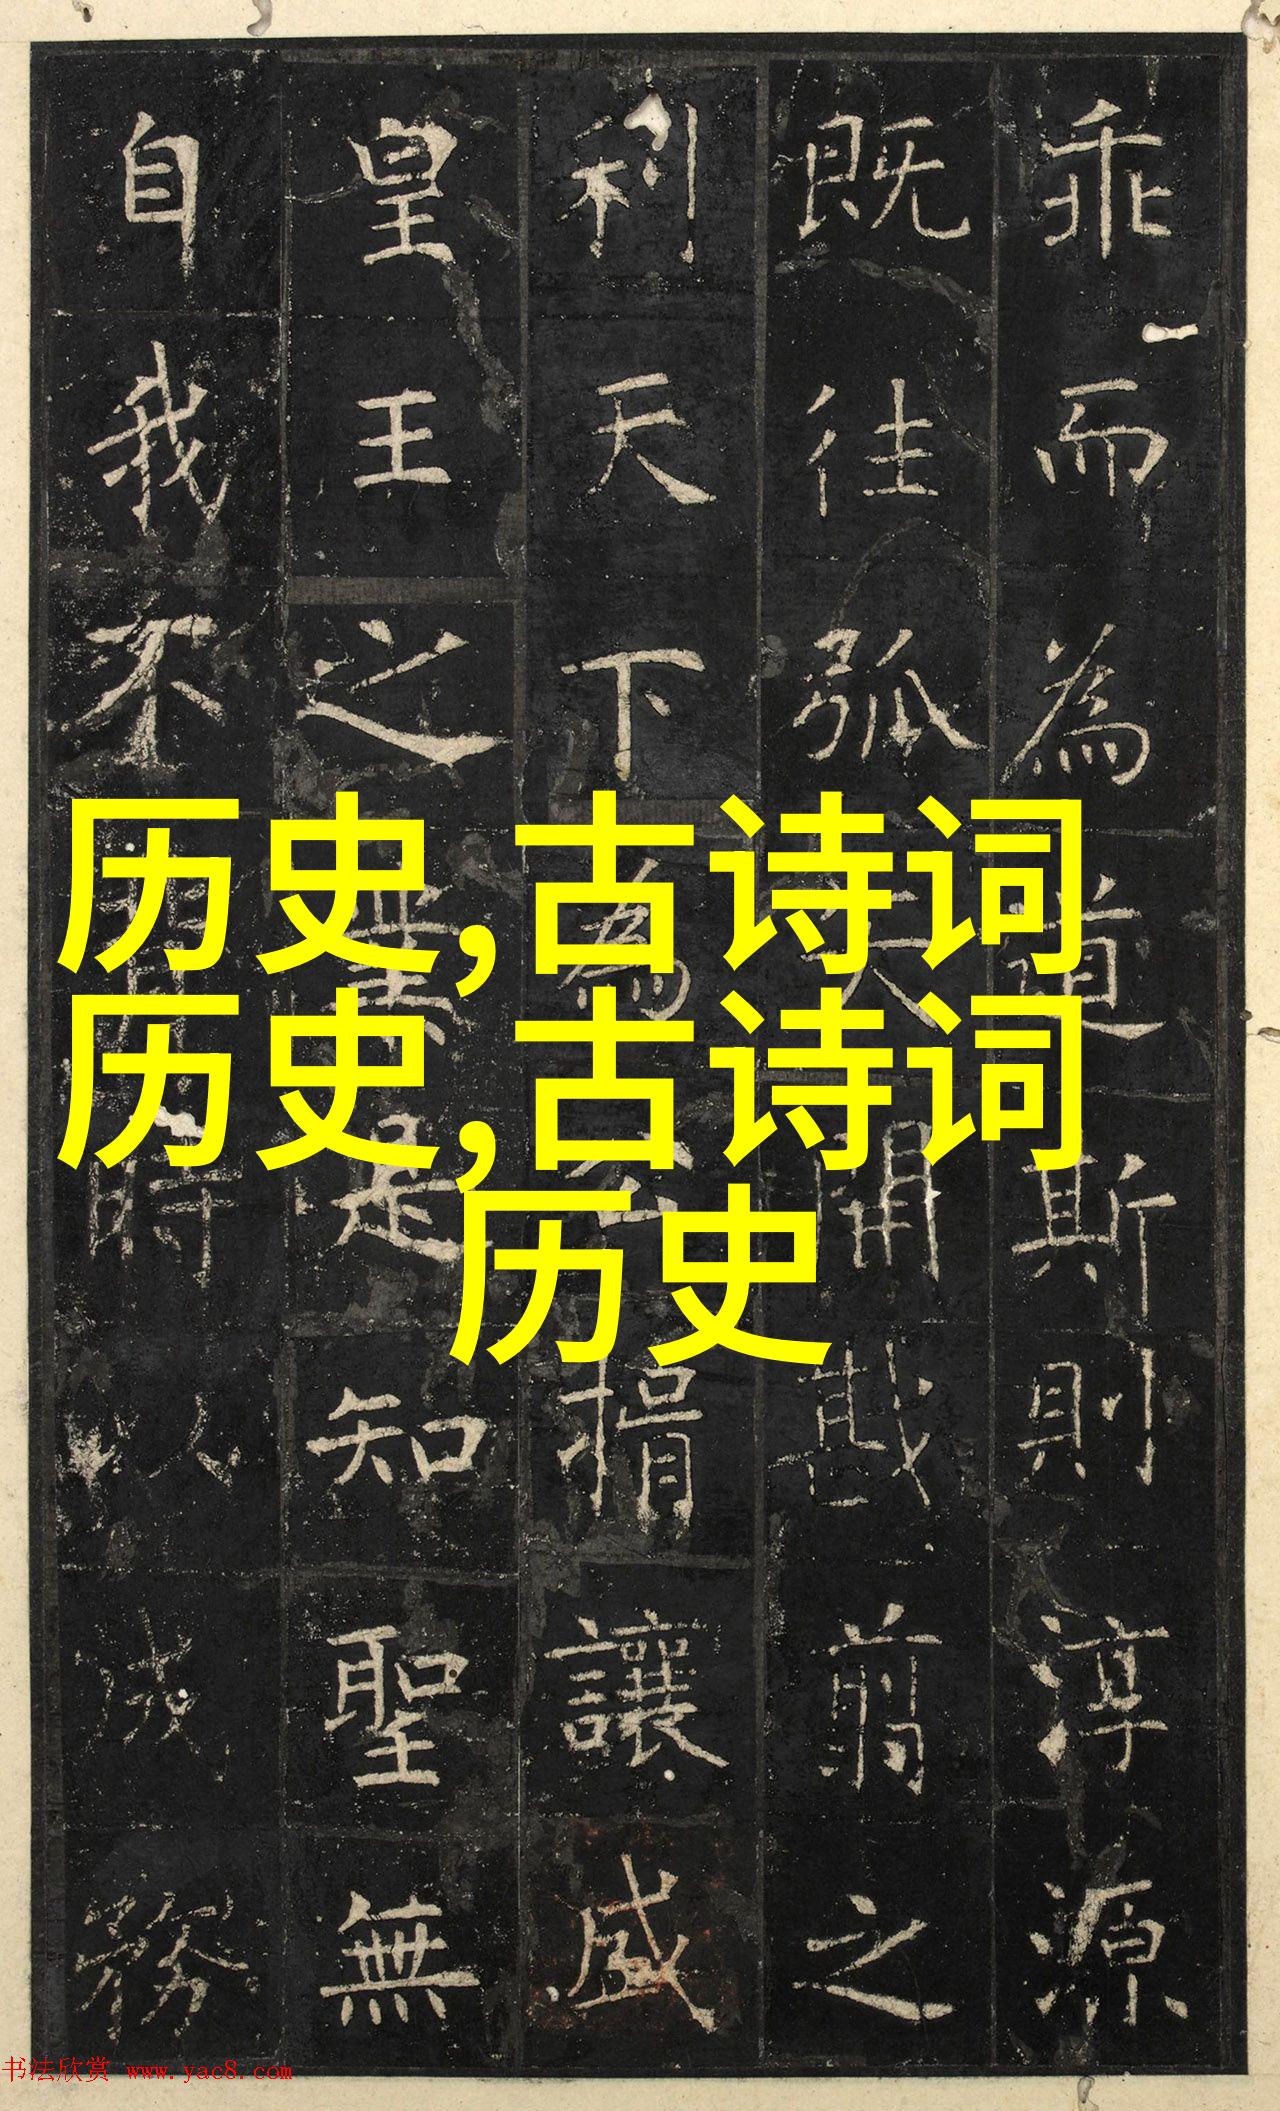 乖而為道斯則淳源
既往弧開戡剪之
利天下為公揖讓威
皇王之業是知聖無
自我不時以成務
历史,古诗词
历史,古诗词
历史
书法欣赏 www.yac8.com